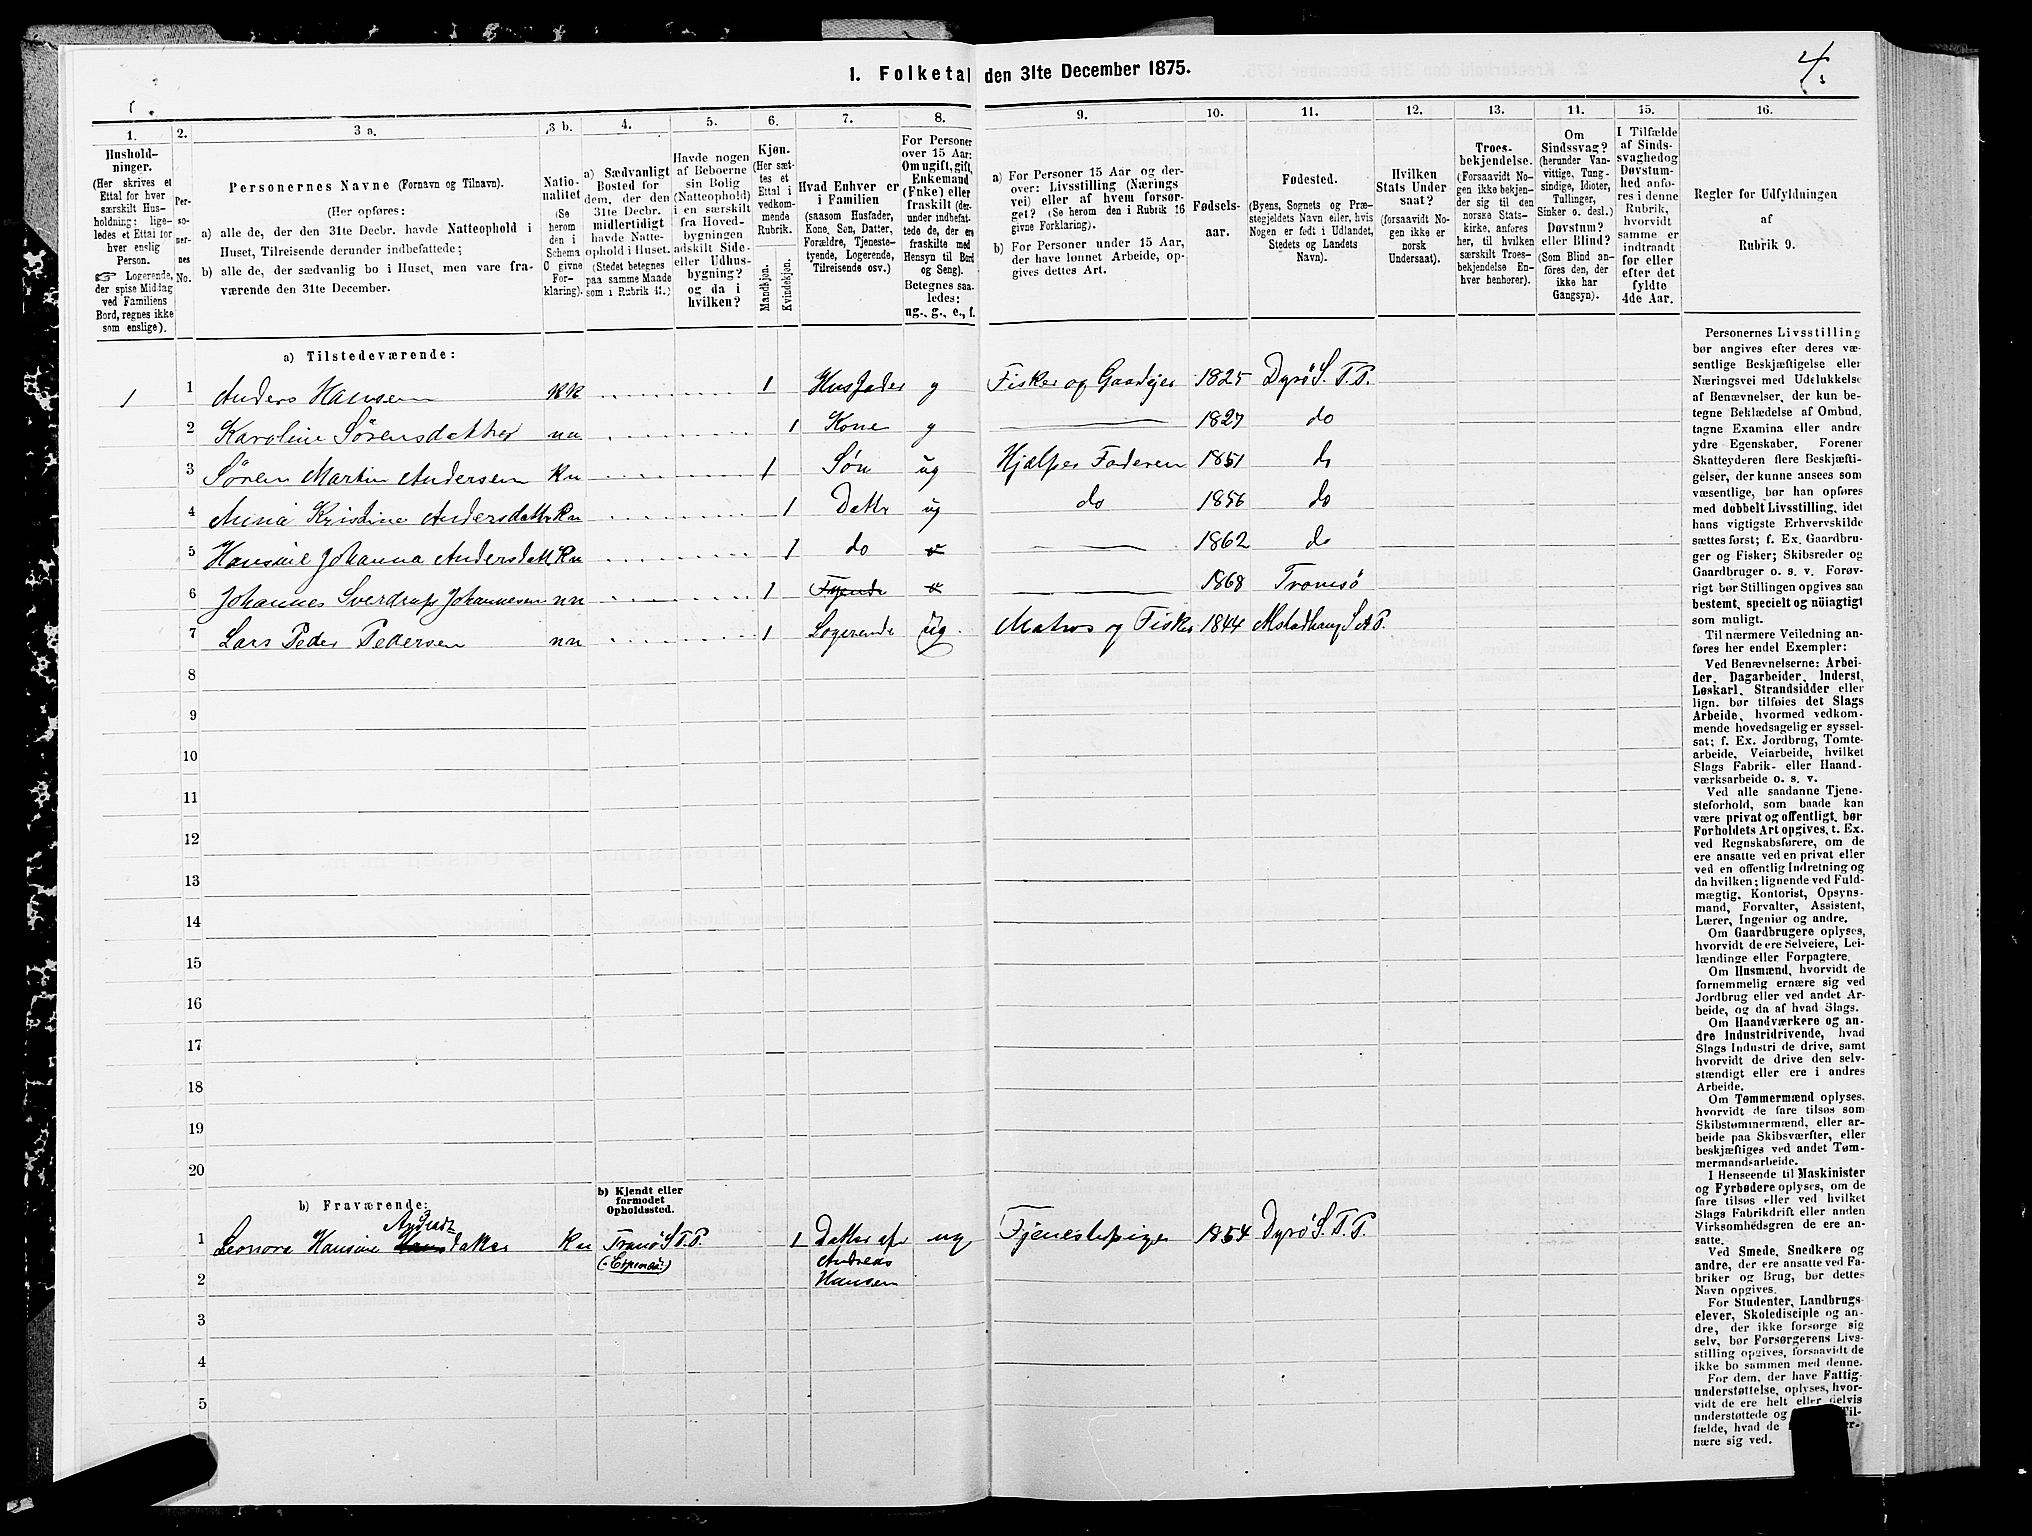 1. Folketal den 31te December 1875.
4.
1.
1.
Hushold-
ninger.
(Her skrives et
Ettal for hver
særskilt Hus-
holdning; lige-
ledes et Ettal for
hver enslig
Person.
☞ Logerende,
der spise Middag
ved Familiens
Bord, regnes ikke
som enslige).
2.
Per-
so-
ner-
nes
No.
3 a.
Personernes Navne (Fornavn og Tilnavn).
(Her opføres:
a) alle de, der den 31te Decbr. havde Natteophold i
Huset, Tilreisende derunder indbefattede;
b) alle de, der sædvanlig bo i Huset, men vare fra-
værende den 31te December.
3 b.
Natio-
nalitet
(Se
herom
den i
Schema
C givne
For-
klaring).
4.
a) Sædvanligt
Bosted for
dem, der den
31te Decbr.
midlertidigt
havde Natte-
ophold i Huset.
(Stedet betegnes
paa samme Maade
som i Rubrik 11.)
5.
Havde nogen
af Beboerne
sin Bolig
(Natteophold)
i en særskilt
fra Hoved-
bygningen
adskilt Side-
eller Udhus-
bygning?
og da i
hvilken?
6.
Kjøn.
(Her sæt-
tes et
Ettal i
vedkom-
mende
Rubrik.
Mandkjøn.
Kvindekjøn.
7.
Hvad Enhver er
i Familien
(saasom Husfader,
Kone, Søn, Datter,
Forældre, Tjeneste-
tyende, Logerende,
Tilreisende osv.)
8.
For Personer
over 15 Aar:
Om ugift, gift,
Enkemand
(Enke) eller
fraskilt (der-
under indbefat-
tede de, der ere
fraskilte med
Hensyn til Bord
og Seng).
Betegnes saa-
ledes:
ug., g., e., f.
9.
a) For Personer 15 Aar og der-
over: Livsstilling (Nærings
vei) eller af hvem forsør-
get? (Se herom den i Rubrik 16
givne Forklaring).
b) For Personer under 15 Aar,
der have lønnet Arbeide, op-
gives dettes Art.
10.
Fødsels-
aar.
11.
Fødested.
(Byens, Sognets og Præ-
stegjeldets Navn eller, hvis
Nogen er født i Udlandet,
Stedets og Landets
Navn).
12.
Hvilken
Stats Under
saat?
(forsaavidt No-
gen ikke er
norsk
Undersaat).
13.
Troes-
bekjendelse.
(Forsaavidt No-
gen ikke bekjen-
der sig til den
norske Stats-
kirke, anføres
her, til hvilken
særskilt Troes-
bekjendelse En-
hver henhører).
14.
Om
Sindssvag?
(herunder Van-
vittige, Tung-
sindige, Idioter,
Tullinger,
Sinker o. desl.)
Døvstum?
eller Blind?
(Som Blind an-
føres den, der
ikke har
Gangsyn).
15.
I Tilfælde
af Sinds-
svaghed og
Døvstum-
hed anfø-
res i denne
Rubrik,
hvorvidt
samme er
indtraadt
før eller
efter det
fyldte
4de Aar.
16.
Regler for Udfyldningen
af
Rubrik 9.
a) Tilstedeværende:
1 1 Anders Hansen 1 Husfader g Fisker og Gaardejer 1825 Dyrø S. T. P.
2 Karoline Sørensdatter nn 1 Kone g 1827 do
3 Søren Martin Andersen Kn 1 Søn ug Hjælper Faderen 1851 do
4 Anna Kristine Andersdattr Kn 1 Dattr ug do 1856 do
5 Johanna Andersdatt Kn 1 do 1862 do
6 Johannes Sverdrup Johannesen nn 1 1868 Tromsø
7 Lars Peder Pedersen nn 1 Logerende ug. Matros og Fisker 1844 Alstadhaug S A P.
8
9
10
11
12
13
14
15
16
17
18
19
20
b) Fraværende:
b) Kjendt eller
formodet
Opholdssted.
1 Leonora Hansine datter Kn Tranø S T. P. 1 Datter af ug Tjenestepige 1854 Dyrø S. T. P.
Andreas
2 Hansen
3
4
5
Personernes Livsstilling
bør angives efter deres væ-
sentlige Beskjæftigelse eller
Næringsvei med Udelukkelse
af Benævnelser, der kun be-
tegne Beklædelse af Ombud,
tagne Examina eller andre
ydre Egenskaber. Forener
Skatteyderen flere Beskjæfti-
gelser, der kunne ansees som
væsentlige, bør han opføres
med dobbelt Livsstilling, idet
hans vigtigste Erhvervskilde
sættes først; f. Ex. Gaardbru-
ger og Fisker; Skibsreder og
Gaardbruger o. s. v. Forøv-
rigt bør Stillingen opgives saa
bestemt, specielt og nøiagtigt
som muligt.
Til nærmere Veiledning an-
føres her endel Exempler:
Ved Benævnelserne: Arbei-
der, Dagarbeider, Inderst,
Løskarl, Strandsidder eller
lign. bør tilføies det Slags
Arbeide, hvormed vedkom-
mende hovedsagelig er syssel-
sat; f. Ex. Jordbrug, Tomte-
arbeide, Veiarbeide, hvilket
Slags Fabrik- eller Haand-
værksarbeide o. s. v.
Ved alle saadanne Tjene-
steforhold, som baade kan
være privat og offentligt, bør
Forholdets Art opgives, t. Ex.
ved Regnskabsførere, om de
ere ansatte ved en privat eller
ved en offentlig Indretning og
da hvilken; lignende ved Fuld-
mægtig, Kontorist, Opsyns-
mand, Forvalter, Assistent,
Lærer, Ingeniør og andre.
Om Gaardbrugere oplyses,
hvorvidt de ere Selveiere, Lei-
lændinge eller Forpagtere.
Om Husmænd, hvorvidt de
fornemmelig ernære sig ved
Jordbrug eller ved andet Ar-
beide, og da af hvad Slags.
Om Haandværkere og an-
dre Industridrivende, hvad
Slags Industri de drive, samt
hvorvidt de drive den selv-
stændigt eller ere i andres
Arbeide.
Om Tømmermænd oplyses,
hvorvidt de fare tilsøs som
Skibstømmermænd, eller ar-
beide paa Skibsværfter, eller
beskjæftiges ved andet Tøm-
mermandsarbeide.
I Henseende til Maskinister
og Fyrbødere oplyses, om de
fare tilsøs eller ved hvilket
Slags Fabrikdrift eller anden
Virksomhedsgren de ere an-
satte.
Ved Smede, Snedkere og
andre, der ere ansatte ved Fa-
briker og Brug, bør dettes
Navn opgives.
For Studenter, Landbrugs-
elever, Skoledisciple og an-
dre, der ikke forsørge sig
selv, bør Forsørgerens Livs-
stilling opgives, forsaavidt de
ikke bo sammen med denne.
For dem, der have Fattig-
understøttelse, oplyses, hvor-
vidt de ere helt eller delvis
understøttede og
fælde, hvad de
nære sig ved.